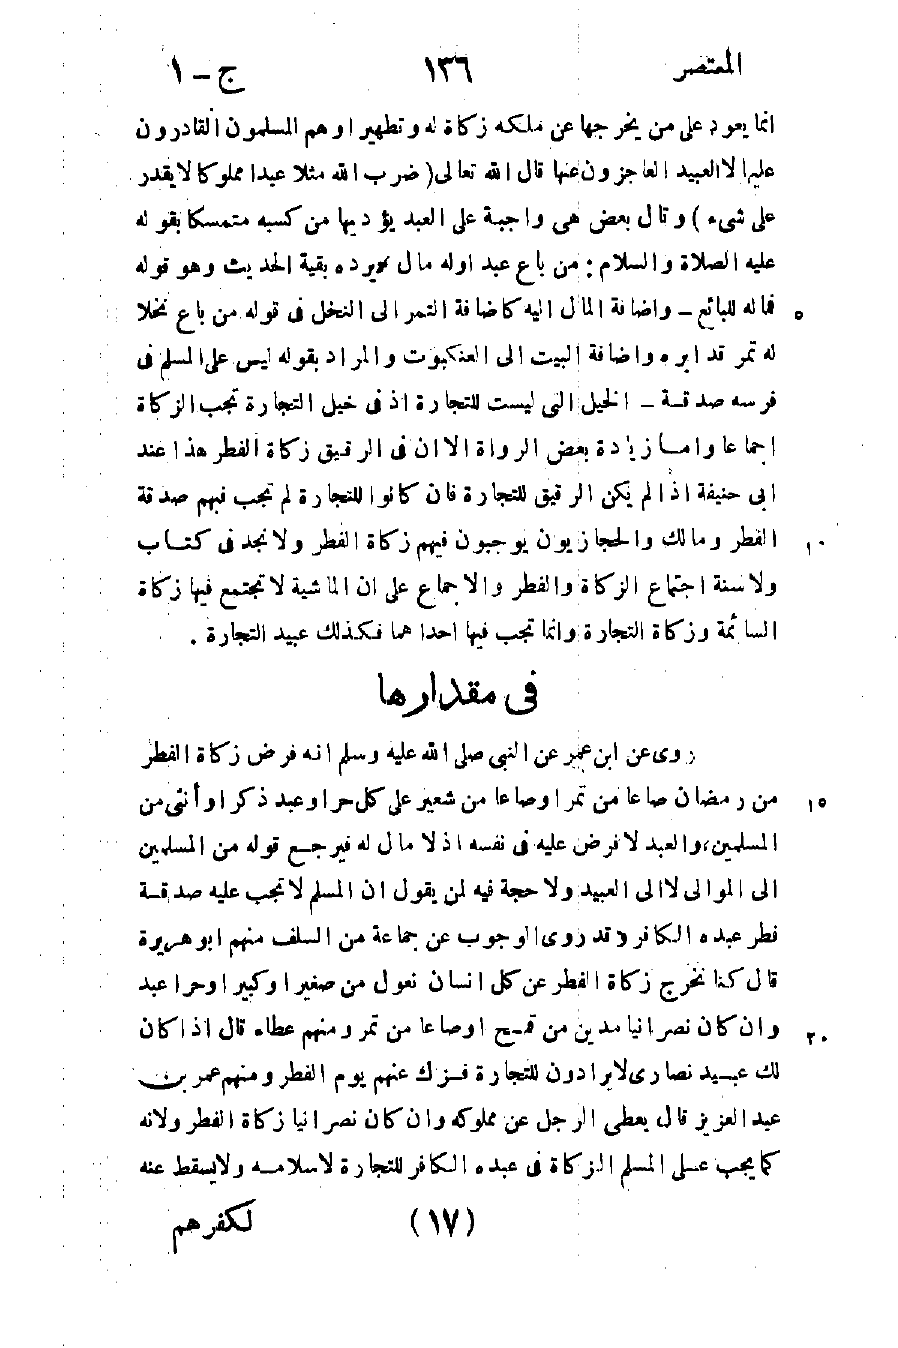 المعتصر ١٣٦ ج - ١
انما يعود على من يخرجها عن ملكه زكاة له وتطهيرا وهم المسلمون القادرون
عليها لا العبيد العاجزون عنها قال الله تعالى (ضرب الله مثلا عبدا مملوكا لا يقدر
على شيء) وقال بعض هي واجبة على العبد يؤديها من كسبه متمسكا بقوله
عليه الصلاة والسلام: من باع عبدا وله مال يرده بقية الحديث وهو قوله
فماله للبائع - واضافة المال اليه كاضافة التمر الى النخل فى قوله من باع نخلا ٥
له تمر قد ابره واضافة البيت الى العنكبوت والمراد بقوله ليس على المسلم فى
فرسه صدقة - الخيل التى ليست للتجارة اذ فى خيل التجارة تجب الزكاة
اجماعا واما زيادة بعض الرواة الا ان فى الرقيق زكاة الفطر هذا عند
ابى حنيفة اذا لم يكن الرقيق للتجارة فان كانوا للتجارة لم تجب فيهم صدقة
الفطر ومالك والحجازيون يوجبون فيهم زكاة الفطر ولا نجد فى كتاب ١٠
ولا سنة اجتماع الزكاة والفطر والاجماع على ان الماشية لا تجتمع فيها زكاة
السائمة وزكاة التجارة وانما تجب فيها احداهما فكذلك عبيد التجارة .
فى مقدارها
روى عن ابن عمر عن النبى صلى الله عليه وسلم انه فرض زكاة الفطر
من رمضان صاعا من تمر او صاعا من شعير على كل حر او عبد ذكر او أنثى من ١٥
المسلمين، والعبد لا فرض عليه فى نفسه اذ لا مال له فيرجع قوله من المسلمين
الى الموالى لا الى العبيد ولا حجة فيه لمن يقول ان المسلم لا تجب عليه صدقة
فطر عبده الكافر وقد روى الوجوب عن جماعة من السلف منهم ابو هريرة
قال كنا نخرج زكاة الفطر عن كل انسان نعول من صغير او كبير او حر او عبد
وان كان نصرانيا مدين من قمح او صاعا من تمر ومنهم عطاء قال اذا كان ٢٠
لك عبيد نصارى لا يرادون للتجارة فزك عنهم يوم الفطر ومنهم عمر بن
عبد العزيز قال يعطى الرجل عن مملوكه وان كان نصرانيا زكاة الفطر ولانه
كما يجب على المسلم الزكاة فى عبده الكافر للتجارة لاسلامه ولا يسقط عنه
(١٧) لكفرهم